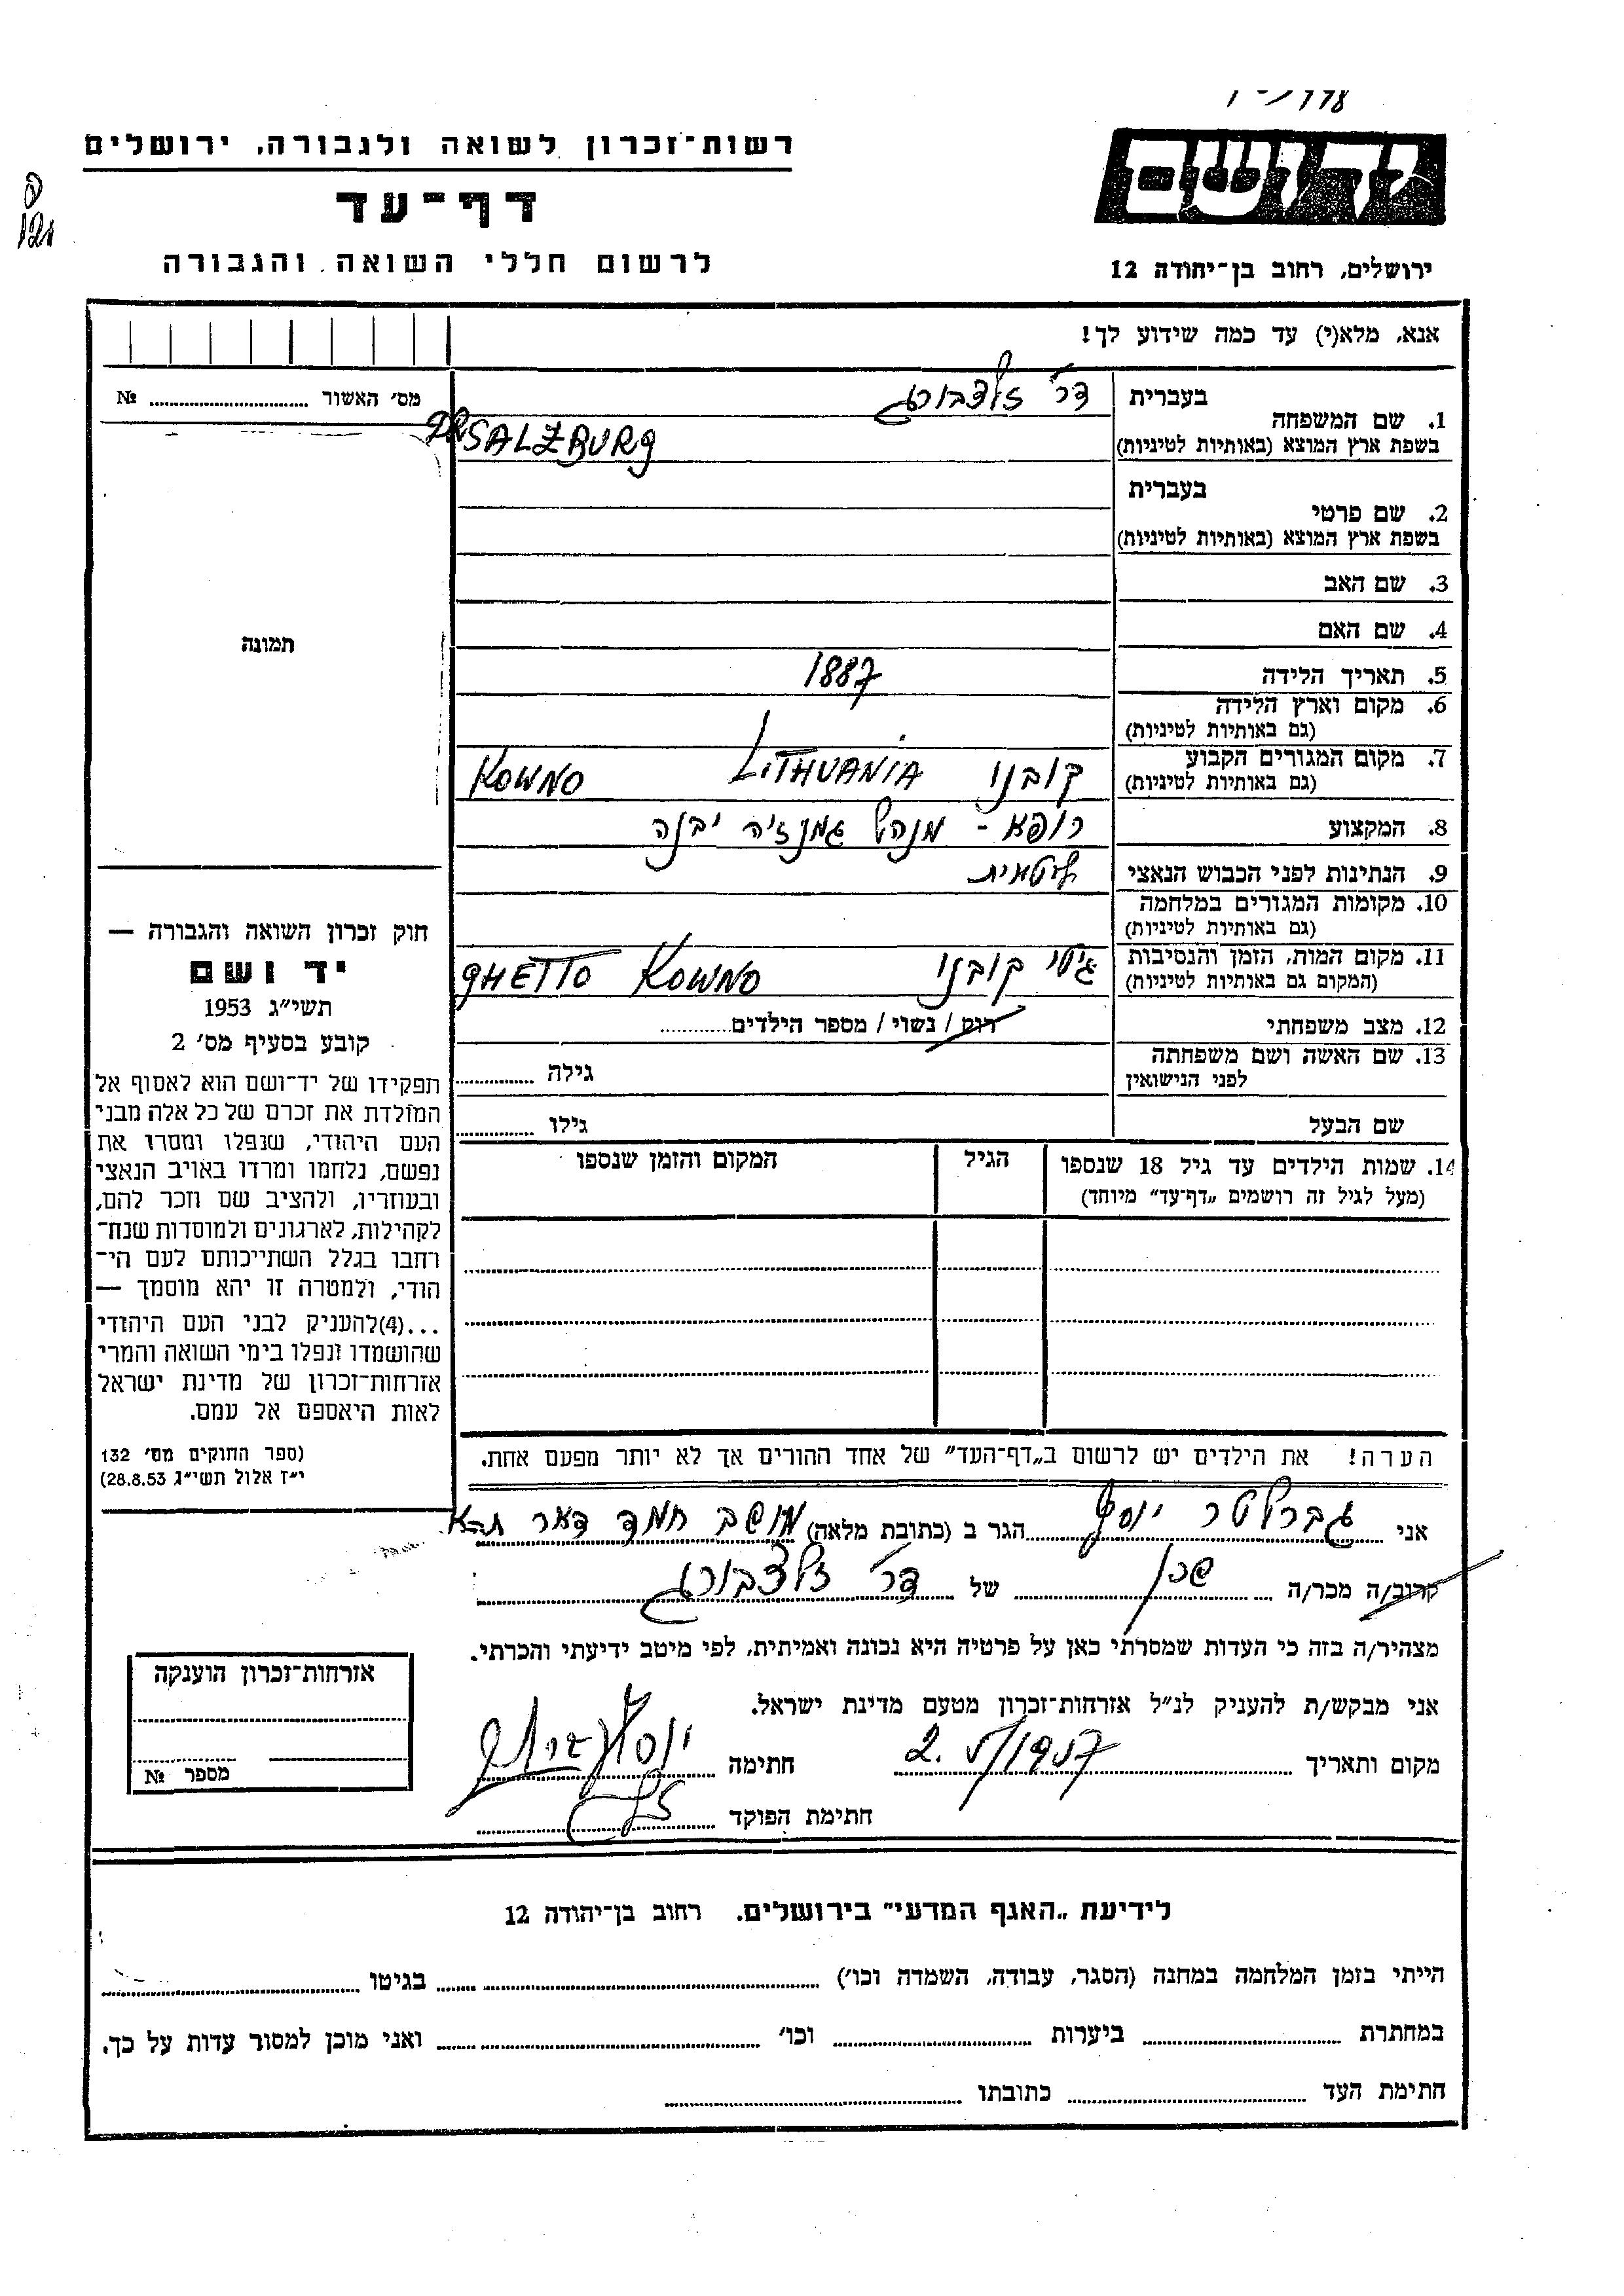 178
יד ושם
רשות-זכרון לשואה ולגבורה, ירושלים
דף-עד
לרשום חללי השואה והגבורה
ירושלים, רחוב בן-יהודה 12
אנא, מלא(י) עד כמה שידוע לך!
מס׳ האשור ........ №
1. שם המשפחה
בעברית ד״ר זלצבורג
בשפת ארץ המוצא (באותיות לטיניות) DR SALZBURG
2. שם פרטי
בעברית
בשפת ארץ המוצא (באותיות לטיניות)
3. שם האב
4. שם האם
5. תאריך הלידה 1887
6. מקום וארץ הלידה
(גם באותיות לטיניות)
7. מקום המגורים הקבוע קובנו LITHUANIA KOWNO
(גם באותיות לטיניות)
8. המקצוע רופא - מנהל גמנזיה יבנה
9. הנתינות לפני הכבוש הנאצי ליטאית
10. מקומות המגורים במלחמה
(גם באותיות לטיניות)
11. מקום המות, הזמן והנסיבות גיטו קובנו GHETTO KOWNO
(המקום גם באותיות לטיניות)
12. מצב משפחתי רוק / נשוי / מספר הילדים........
13. שם האשה ושם משפחתה גילה ........
לפני הנישואין
שם הבעל גילו ........
14. שמות הילדים עד גיל 18 שנספו הגיל המקום והזמן שנספו
(מעל לגיל זה רושמים „דף-עד״ מיוחד)
הערה! את הילדים יש לרשום ב„דף-העד״ של אחד ההורים אך לא יותר מפעם אחת.
תמונה
חוק זכרון השואה והגבורה —
יד ושם
תשי״ג 1953
קובע בסעיף מס׳ 2
תפקידו של יד-ושם הוא לאסוף אל
המולדת את זכרם של כל אלה מבני
העם היהודי, שנפלו ומסרו את
נפשם, נלחמו ומרדו באויב הנאצי
ובעוזריו, ולהציב שם וזכר להם,
לקהילות, לארגונים ולמוסדות שנח-
רחבו בגלל השתייכותם לעם הי-
הודי, ולמטרה זו יהא מוסמך —
...(4)להעניק לבני העם היהודי
שהושמדו ונפלו בימי השואה והמרי
אזרחות-זכרון של מדינת ישראל
לאות היאספם אל עמם.
(ספר החוקים מס׳ 132
י״ז אלול תשי״ג 28.8.53)
אני גברלטר יוסף הגר ב (כתובת מלאה) מושב חמד דאר ת״א
קרוב/ה מכר/ה שכן של ד״ר זלצבורג
מצהיר/ה בזה כי העדות שמסרתי כאן על פרטיה היא נכונה ואמיתית, לפי מיטב ידיעתי והכרתי.
אני מבקש/ת להעניק לנ״ל אזרחות-זכרון מטעם מדינת ישראל.
מקום ותאריך 2.V/1957 חתימה
חתימת הפוקד
אזרחות-זכרון הוענקה
מספר №
לידיעת „האגף המדעי״ בירושלים. רחוב בן-יהודה 12
הייתי בזמן המלחמה במחנה (הסגר, עבודה, השמדה וכו׳) ........ בגיטו ........
במחתרת ........ ביערות ........ וכו׳ ........ ואני מוכן למסור עדות על כך.
חתימת העד ........ כתובתו ........